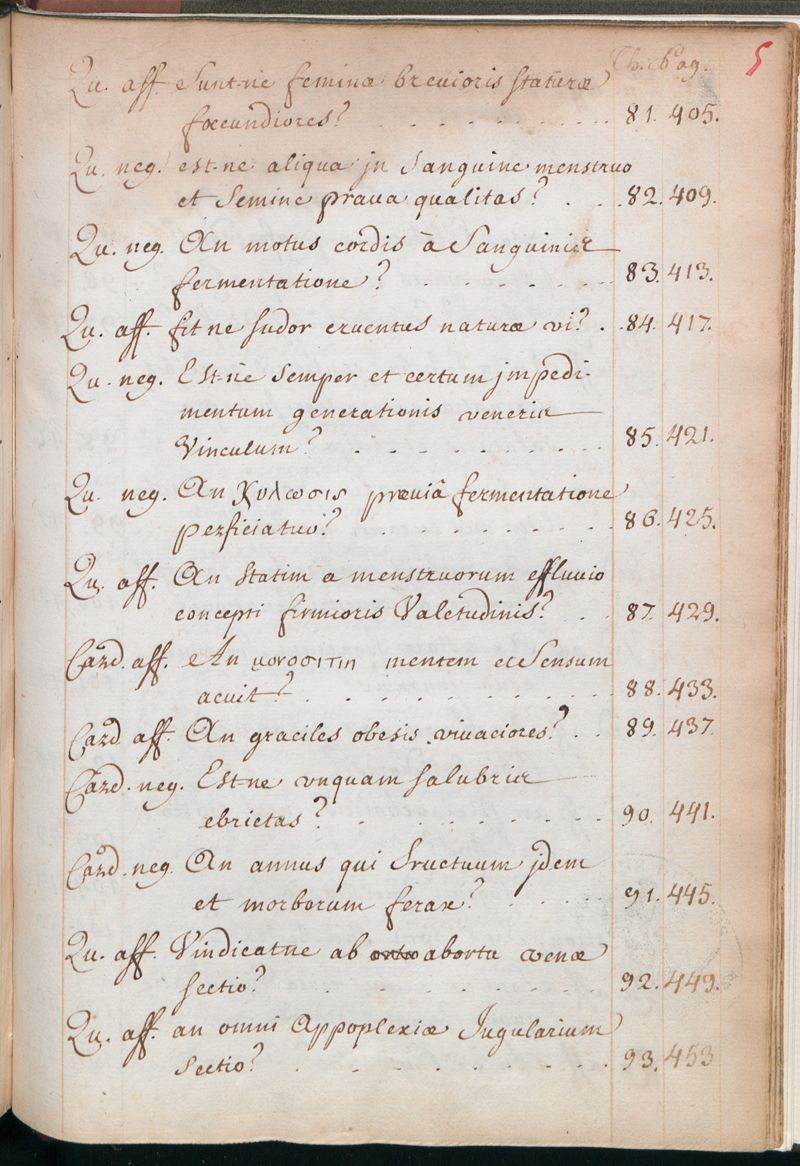 Th. Pag. 5
Qu. aff. Sunt-ne feminæ brevioris staturæ
fœcundiores? 81. 405.
Qu. neg. est-ne aliqua jn Sanguine menstruo
et Semine praua qualitas? 82. 409.
Qu. neg. An motus cordis à Sanguinis
fermentatione? 83. 413.
Qu. aff. fit ne sudor cruentus naturæ vi? 84. 417.
Qu. neg. Est-ne semper et certum jmpedi-
mentum generationis veneris
Vinculum? 85. 421.
Qu. neg. An χυλωσις præviâ fermentatione
perficiatur? 86. 425.
Qu. aff. An statim a menstruorum effluvio
concepti firmioris Valetudinis? 87. 429.
Card. aff. An μονοσιτιη mentem et Sensum
acuit? 88. 433.
Card aff. An graciles obesis vivaciores? 89. 437.
Card. neg. Est-ne vnquam salubris
ebrietas? 90. 441.
Card. neg. An annus qui fructuum jdem
et morborum ferax? 91. 445.
Qu. aff. Vindicatne ab abortu venæ
sectio? 92. 449.
Qu. aff. an omni Appoplexiæ Jugularium
sectio? 93. 453